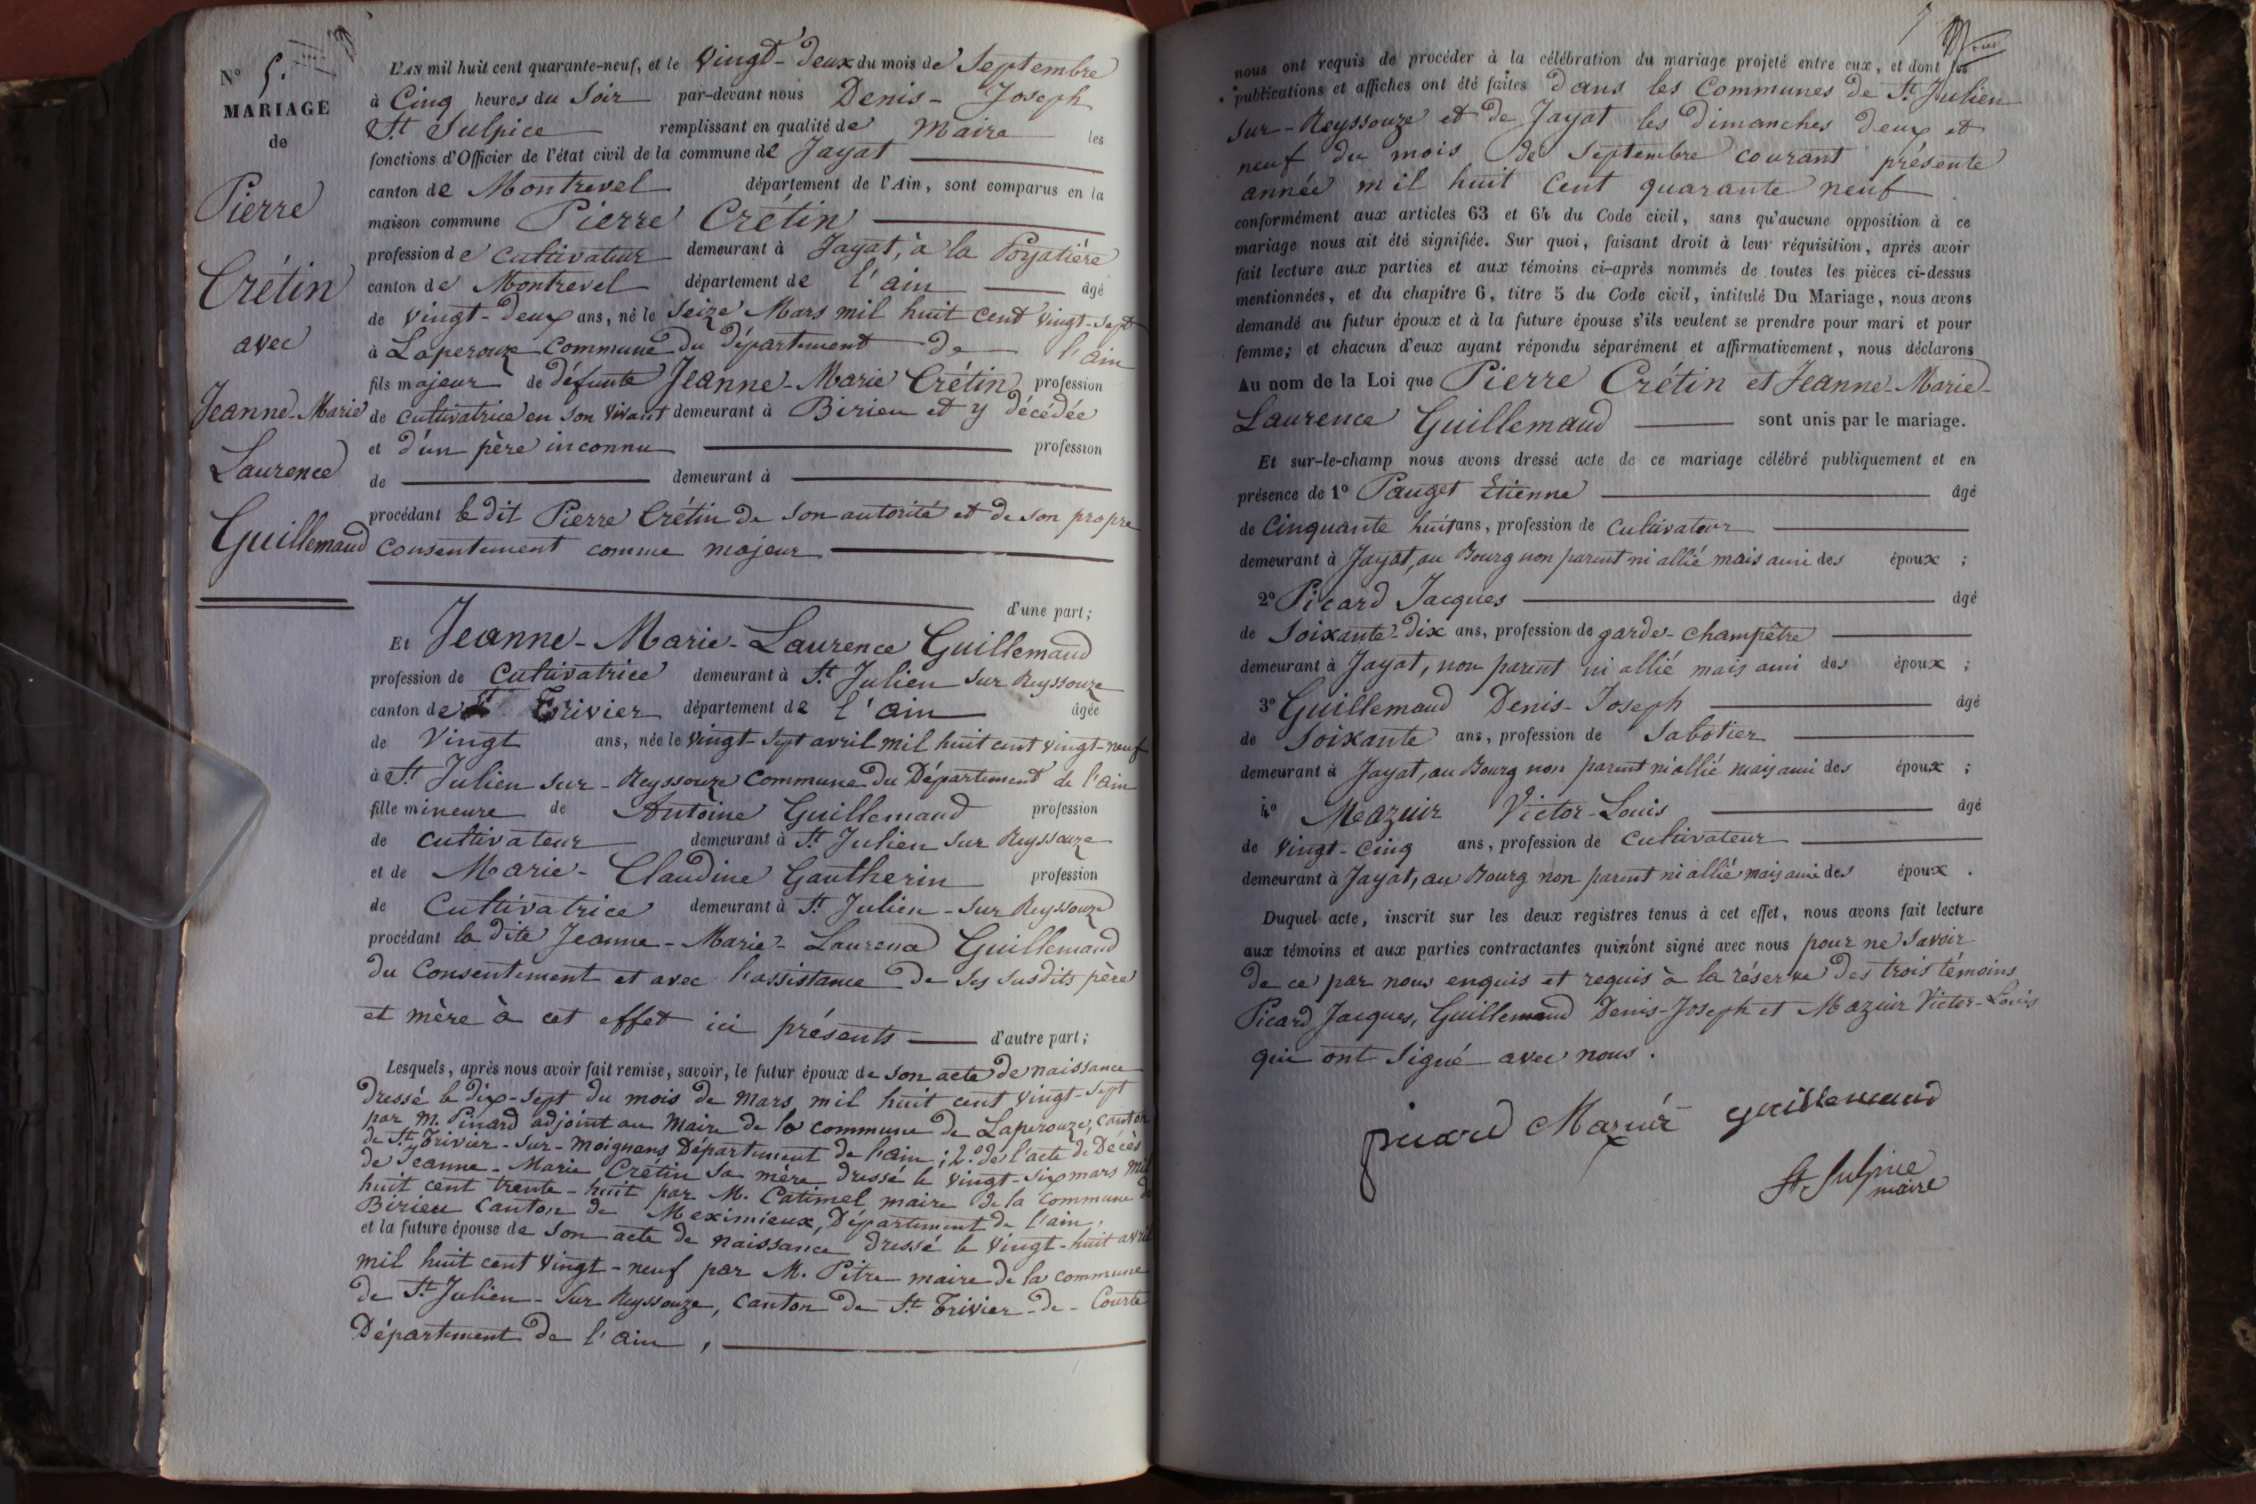 N° 5.
MARIAGE
de
Pierre
Crétin
avec
Jeanne-Marie
Laurence
Guillemaud
L'AN mil huit cent quarante-neuf, et le vingt-deux du mois de Septembre
à Cinq heures du Soir par-devant nous Denis-Joseph
St Sulpice remplissant en qualité de Maire les
fonctions d'Officier de l'état civil de la commune de Jayat
canton de Montrevel département de l'Ain, sont comparus en la
maison commune Pierre Crétin
profession de cultivateur demeurant à Jayat, à la Poyatière
canton de Montrevel département de l'ain âgé
de vingt-deux ans, né le Seize Mars mil huit cent vingt-sept
à Laperouze commune du département de l'ain
fils majeur de défunte Jeanne-Marie Crétin profession
de cultivatrice en son vivant demeurant à Birieu et y décédée
et d'un père inconnu profession
de demeurant à
procédant le dit Pierre Crétin de son autorité et de son propre
consentement comme majeur
d'une part;
Et Jeanne-Marie-Laurence Guillemaud
profession de cultivatrice demeurant à St Julien sur Reyssouze
canton de St Trivier département de l'ain âgée
de vingt ans, née le vingt-sept avril mil huit cent vingt-neuf
à St Julien sur-Reyssouze commune du Département de l'ain
fille mineure de Antoine Guillemaud profession
de cultivateur demeurant à St Julien sur Reyssouze
et de Marie-Claudine Gautherin profession
de Cultivatrice demeurant à St Julien-sur Reyssouze
procédant la dite Jeanne-Marie-Laurence Guillemaud
du Consentement et avec l'assistance de ses susdits père
et mère à cet effet ici présents d'autre part;
Lesquels, après nous avoir fait remise, savoir, le futur époux de son acte de naissance
dressé le dix-sept du mois de mars mil huit cent vingt-sept
par M. Pinard adjoint au maire de la commune de Laperouze, canton
de St Trivier-sur-moignans Département de l'ain; 2° de l'acte de Décès
de Jeanne-Marie Crétin sa mère dressé le vingt-six mars mil
huit cent trente-huit par M. Catimel maire de la commune de
Birieu canton de Meximieux, Département de l'ain,
et la future épouse de son acte de naissance dressé le vingt-huit avril
mil huit cent vingt-neuf par M. Pitre maire de la commune
de St Julien-sur Reyssouze, canton de St Trivier-de-Courte
Département de l'ain,
nous ont requis de procéder à la célébration du mariage projeté entre eux, et dont les
publications et affiches ont été faites dans les Communes de St Julien
sur-Reyssouze et de Jayat les dimanches deux et
neuf du mois de septembre courant présente
année mil huit cent quarante neuf
conformément aux articles 63 et 64 du Code civil, sans qu'aucune opposition à ce
mariage nous ait été signifiée. Sur quoi, faisant droit à leur réquisition, après avoir
fait lecture aux parties et aux témoins ci-après nommés de toutes les pièces ci-dessus
mentionnées, et du chapitre 6, titre 5 du Code civil, intitulé Du Mariage, nous avons
demandé au futur époux et à la future épouse s'ils veulent se prendre pour mari et pour
femme; et chacun d'eux ayant répondu séparément et affirmativement, nous déclarons
Au nom de la Loi que Pierre Crétin et Jeanne-Marie-
Laurence Guillemaud sont unis par le mariage.
Et sur-le-champ nous avons dressé acte de ce mariage célébré publiquement et en
présence de 1° Pauget Etienne âgé
de Cinquante huit ans, profession de cultivateur
demeurant à Jayat, au Bourg non parent ni allié mais ami des époux;
2° Picard Jacques âgé
de soixante-dix ans, profession de garde-champêtre
demeurant à Jayat, non parent ni allié mais ami des époux;
3° Guillemaud Denis-Joseph âgé
de soixante ans, profession de Sabotier
demeurant à Jayat, au Bourg non parent ni allié mais ami des époux;
4° Meazuir Victor-Louis âgé
de vingt-cinq ans, profession de cultivateur
demeurant à Jayat, au Bourg non parent ni allié mais ami des époux.
Duquel acte, inscrit sur les deux registres tenus à cet effet, nous avons fait lecture
aux témoins et aux parties contractantes qui n'ont signé avec nous pour ne savoir
de ce par nous enquis et requis à la réserve des trois témoins
Picard Jacques, Guillemaud Denis-Joseph et Mazuir Victor-Louis
qui ont signé avec nous.
picard Mazuir guillemaud
St Sulpice
maire